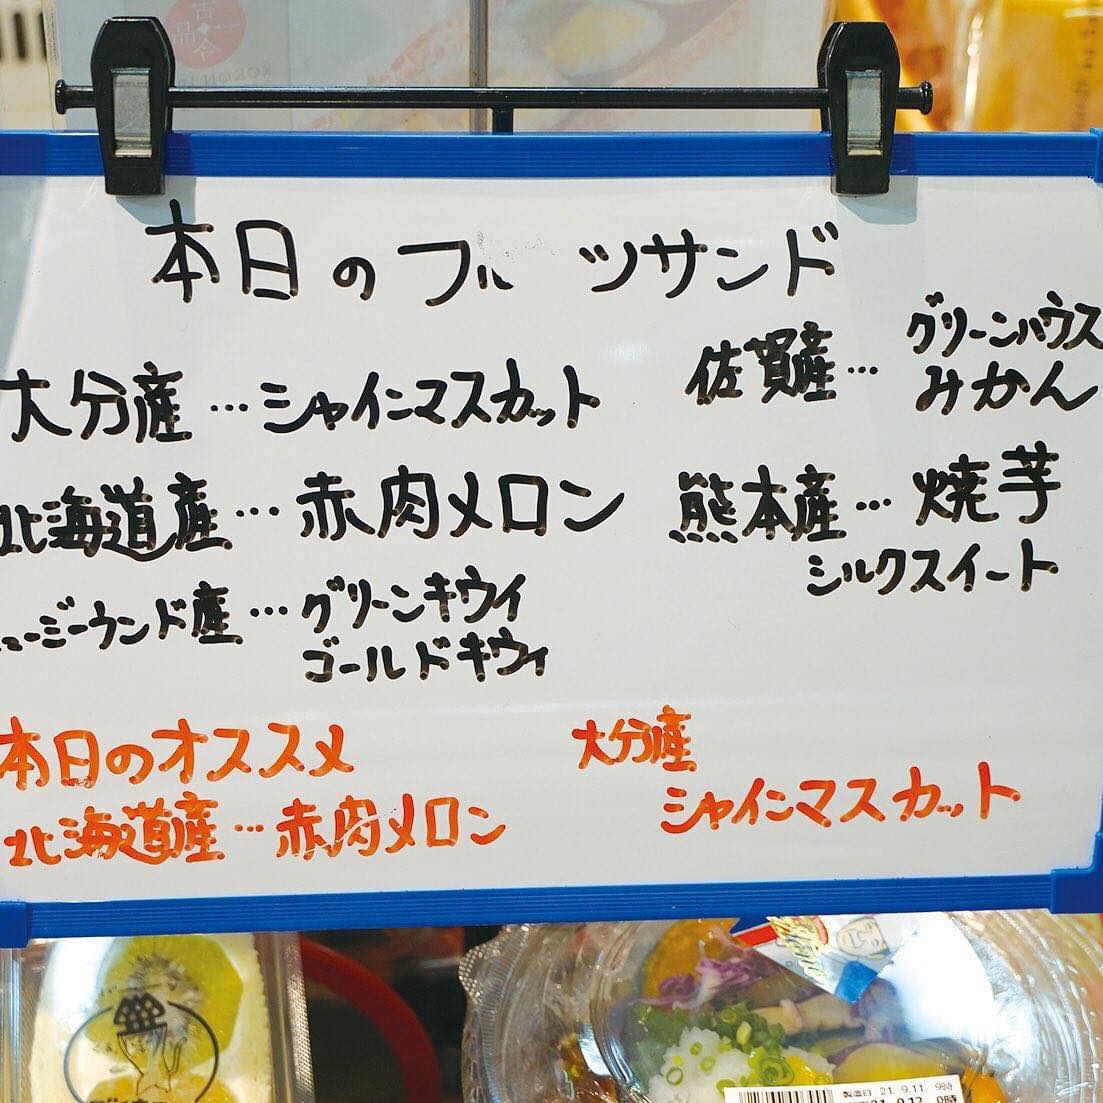 本日のフル ツサンド
大分産…シャインマスカット
北海道産…赤肉メロン
ニュージーランド産…グリーンキウイ
ゴールドキウィ
佐賀産…グリーンハウス
みかん
熊本産…焼芋
シルクスイート
本日のオススメ
北海道産…赤肉メロン
大分産
シャインマスカット
製造日 21. 9.11 9時
21. 9.12 0時